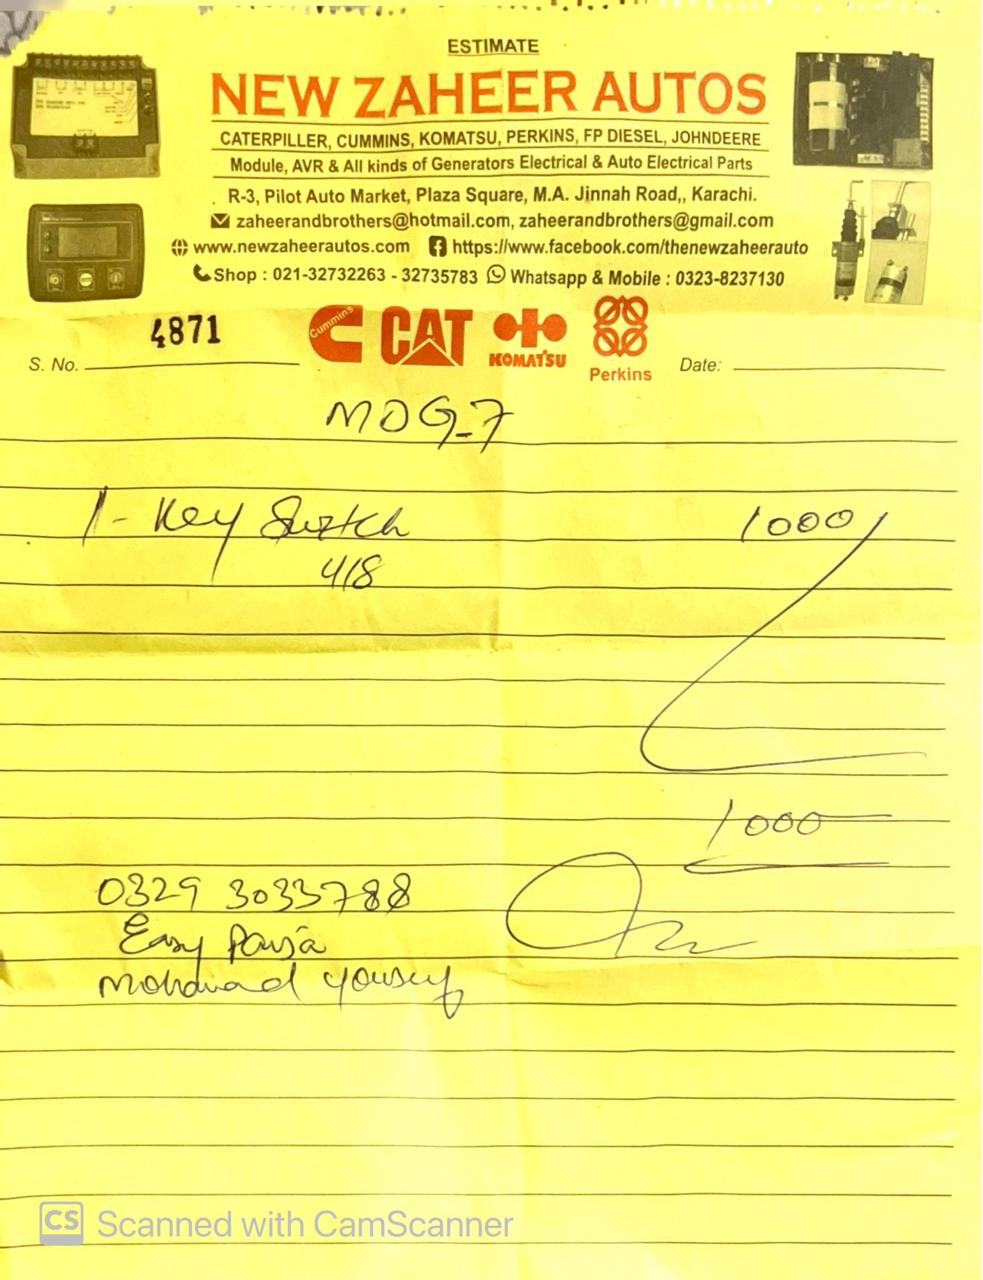 ESTIMATE
NEW ZAHEER AUTOS
CATERPILLER, CUMMINS, KOMATSU, PERKINS, FP DIESEL, JOHNDEERE
Module, AVR & All kinds of Generators Electrical & Auto Electrical Parts
R-3, Pilot Auto Market, Plaza Square, M.A. Jinnah Road,, Karachi.
zaheerandbrothers@hotmail.com, zaheerandbrothers@gmail.com
www.newzaheerautos.com https://www.facebook.com/thenewzaheerauto
Shop : 021-32732263 - 32735783 Whatsapp & Mobile : 0323-8237130
Cummins CAT KOMATSU Perkins
S. No. 4871 Date:
MDG-7
1- Key Switch 1000/
418
1000
0329 3033788
Easy Paisa
Mohamad Yousuf
CS Scanned with CamScanner